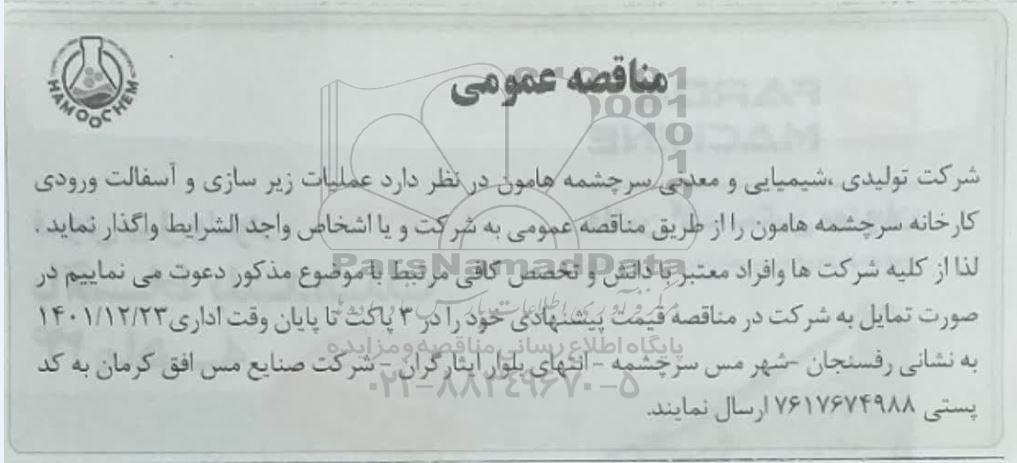 HAMOOCHEM
مناقصه عمومی
شرکت تولیدی ،شیمیایی و معدنی سرچشمه هامون در نظر دارد عملیات زیر سازی و آسفالت ورودی
کارخانه سرچشمه هامون را از طریق مناقصه عمومی به شرکت و یا اشخاص واجد الشرایط واگذار نماید .
لذا از کلیه شرکت ها وافراد معتبر با دانش و تخصص کافی مرتبط با موضوع مذکور دعوت می نماییم در
صورت تمایل به شرکت در مناقصه قیمت پیشنهادی خود را در ۳ پاکت تا پایان وقت اداری ۱۴۰۱/۱۲/۲۳
به نشانی رفسنجان -شهر مس سرچشمه - انتهای بلوار ایثارگران - شرکت صنایع مس افق کرمان به کد
پستی ۷۶۱۷۶۷۴۹۸۸ ارسال نمایند.
ParsNamadData
پایگاه اطلاع رسانی مناقصه و مزایده
۰۲۱-۸۸۳۴۹۶۷۰-۵